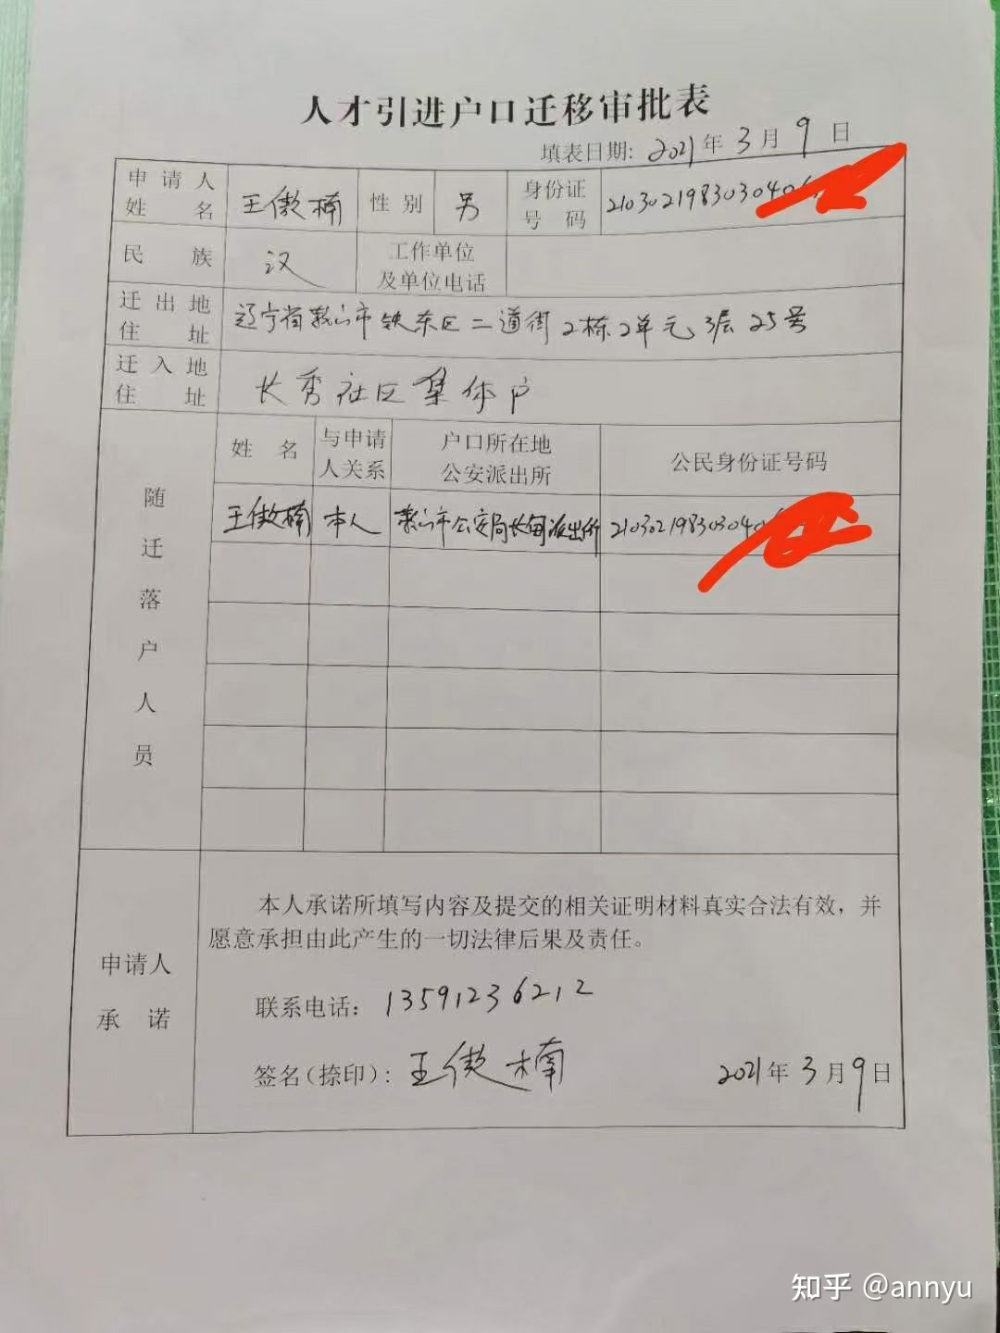 人才引进户口迁移审批表
填表日期: 2021年3月9日
申请人姓名 王傲楠 性别 男 身份证号码 21030219830304
民族 汉 工作单位及单位电话
迁出地住址 辽宁省鞍山市铁东区二道街2栋2单元3层25号
迁入地住址 长秀社区集体户
随迁落户人员 姓名 与申请人关系 户口所在地公安派出所 公民身份证号码
王傲楠 本人 鞍山市公安局长甸派出所 21030219830304
申请人承诺
本人承诺所填写内容及提交的相关证明材料真实合法有效，并
愿意承担由此产生的一切法律后果及责任。
联系电话: 13591236212
签名(捺印): 王傲楠 2021年3月9日
知乎 @annyu